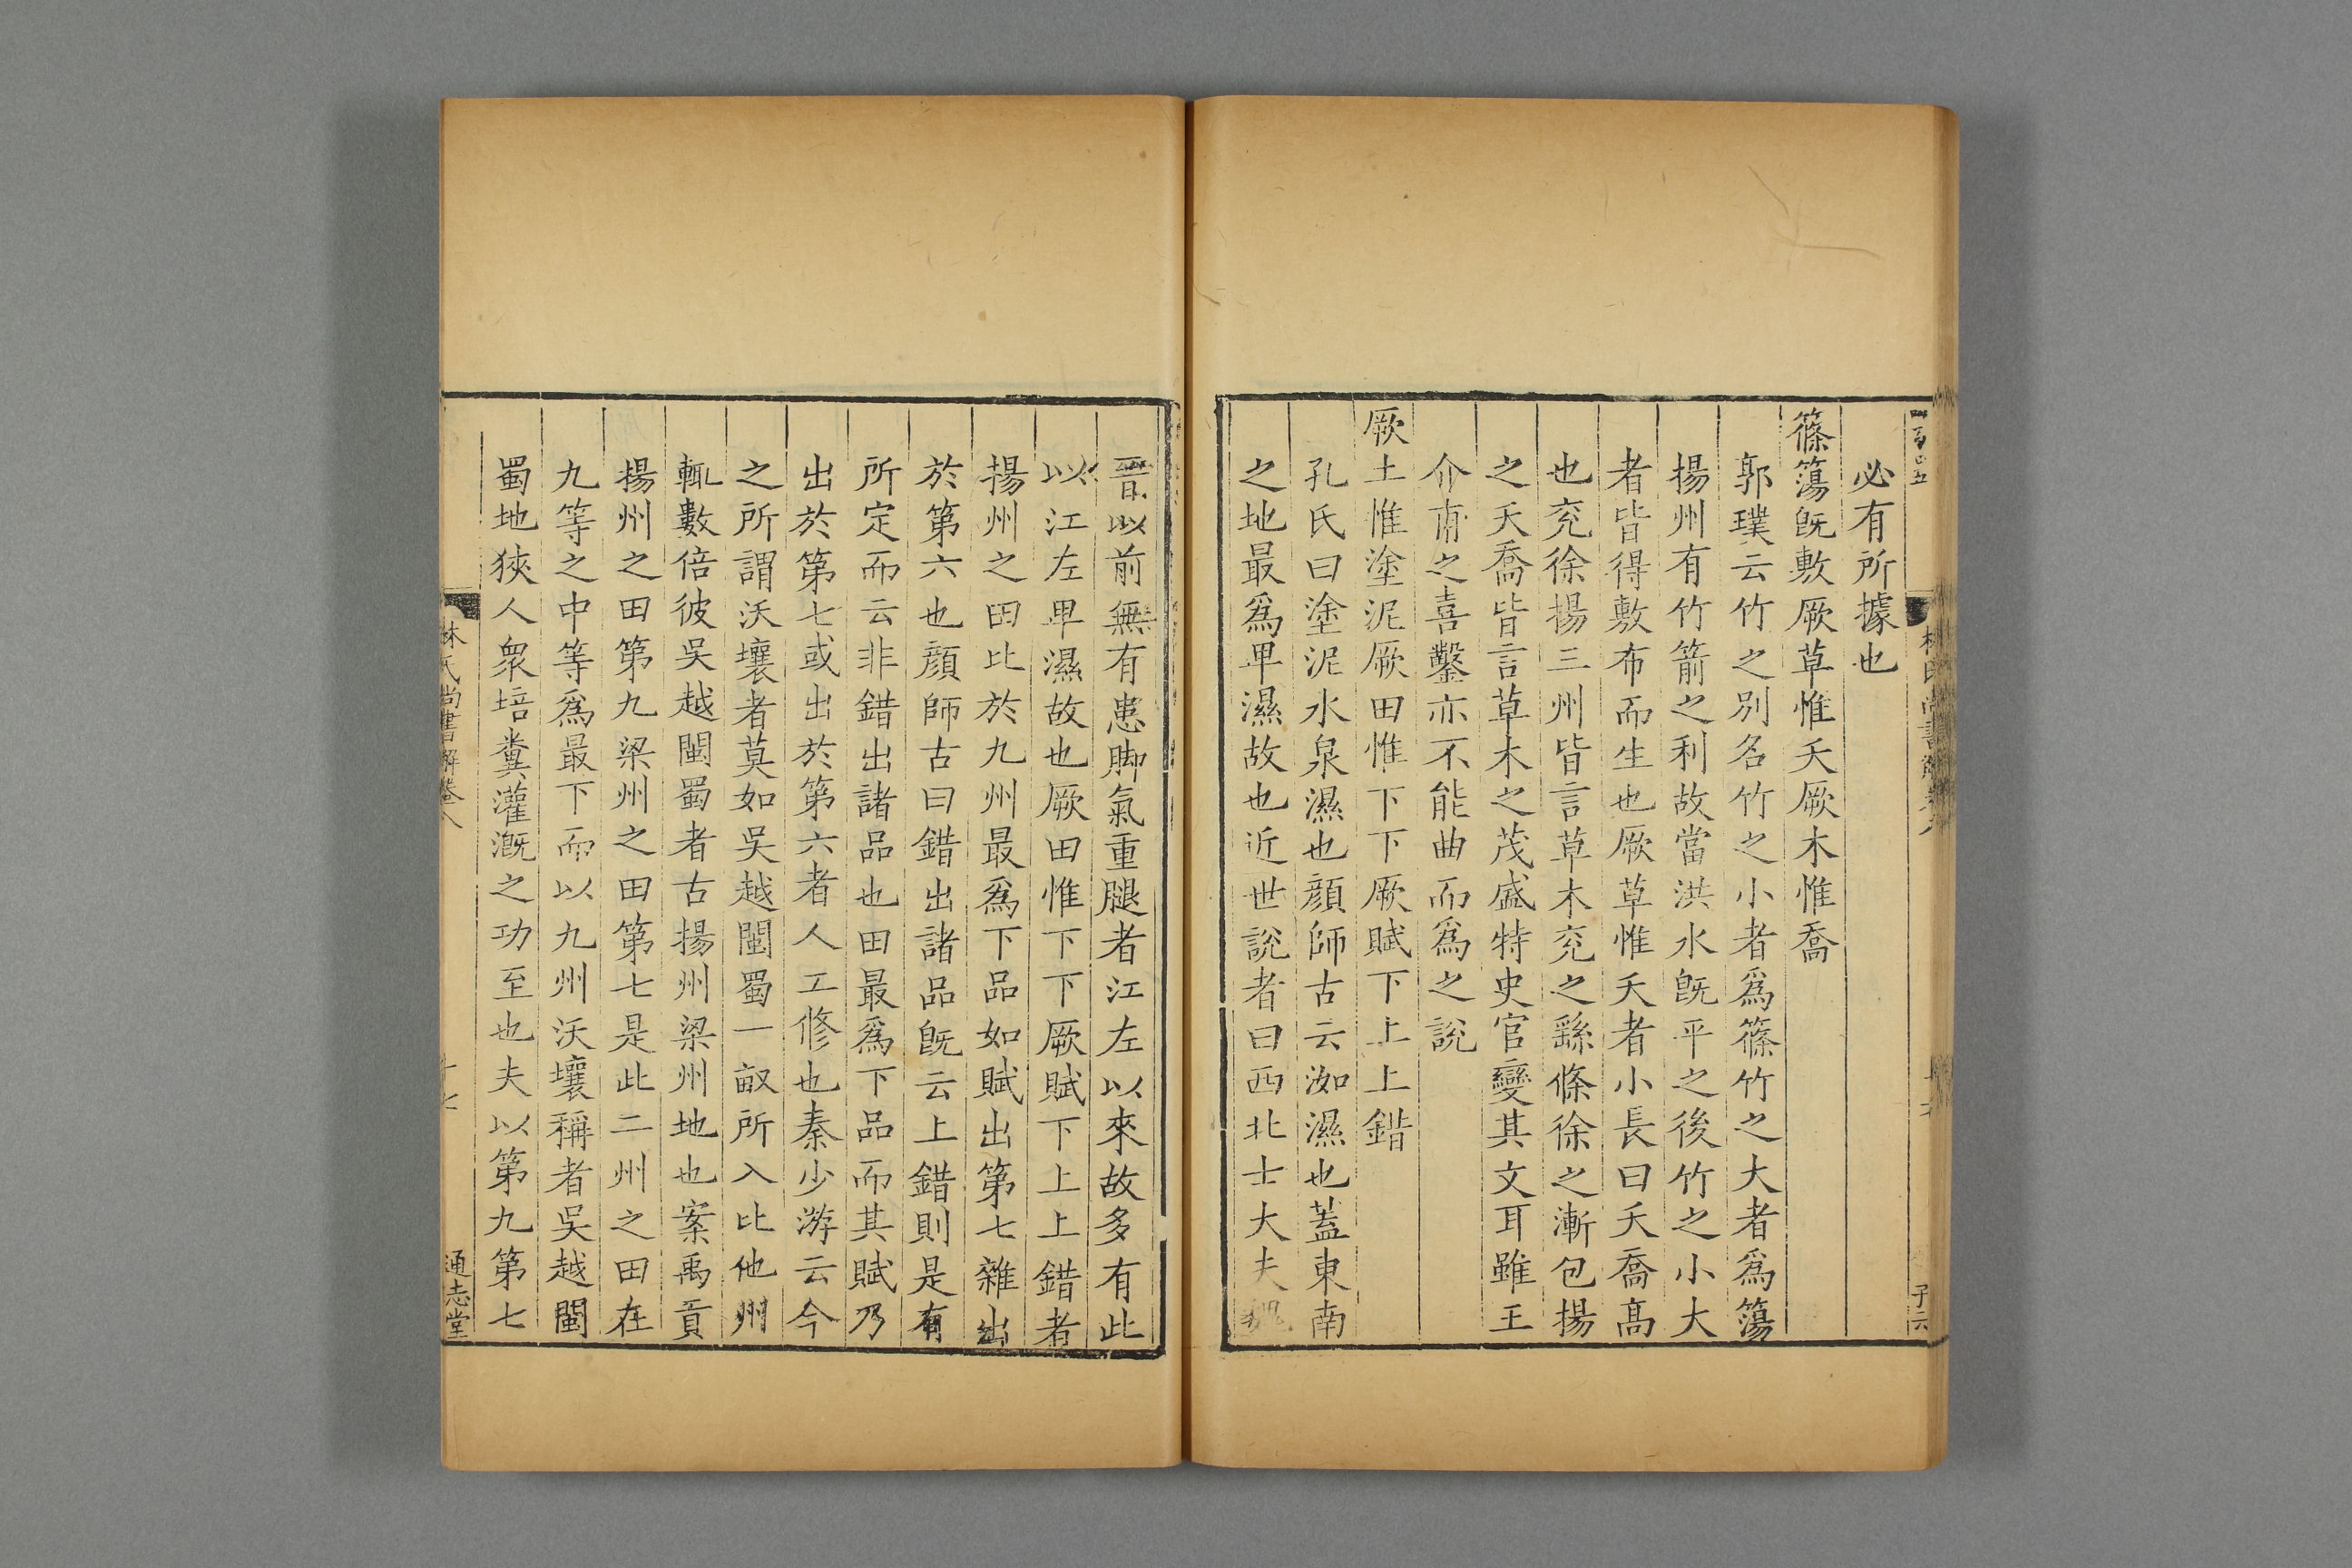 必有所據也
篠簜旣敷厥草惟夭厥木惟喬
郭璞云竹之別名竹之小者爲篠竹之大者爲簜
揚州有竹箭之利故當洪水旣平之後竹之小大
者皆得敷布而生也厥草惟夭者小長曰夭喬高
也兖徐揚三州皆言草木兖之繇條徐之漸包揚
之夭喬皆言草木之茂盛特史官變其文耳雖王
介甫之喜鑿亦不能曲而爲之說
厥土惟塗泥厥田惟下下厥賦下上上錯
孔氏曰塗泥水泉濕也顔師古云洳濕也蓋東南
之地最爲卑濕故也近世說者曰西北士大夫魏
晉以前無有患脚氣重腿者江左以來故多有此
以江左卑濕故也厥田惟下下厥賦下上上錯者
揚州之田比於九州最爲下品如賦出第七雜出
於第六也顔師古曰錯出諸品旣云上錯則是有
所定而云非錯出諸品也田最爲下品而其賦乃
出於第七或出於第六者人工修也秦少游云今
之所謂沃壤者莫如吳越閩蜀一畝所入比他州
輒數倍彼吳越閩蜀者古揚州梁州地也案禹貢
揚州之田第九梁州之田第七是此二州之田在
九等之中等爲最下而以九州沃壤稱者吳越閩
蜀地狹人衆培糞灌漑之功至也夫以第九第七
林氏尚書解卷八
通志堂